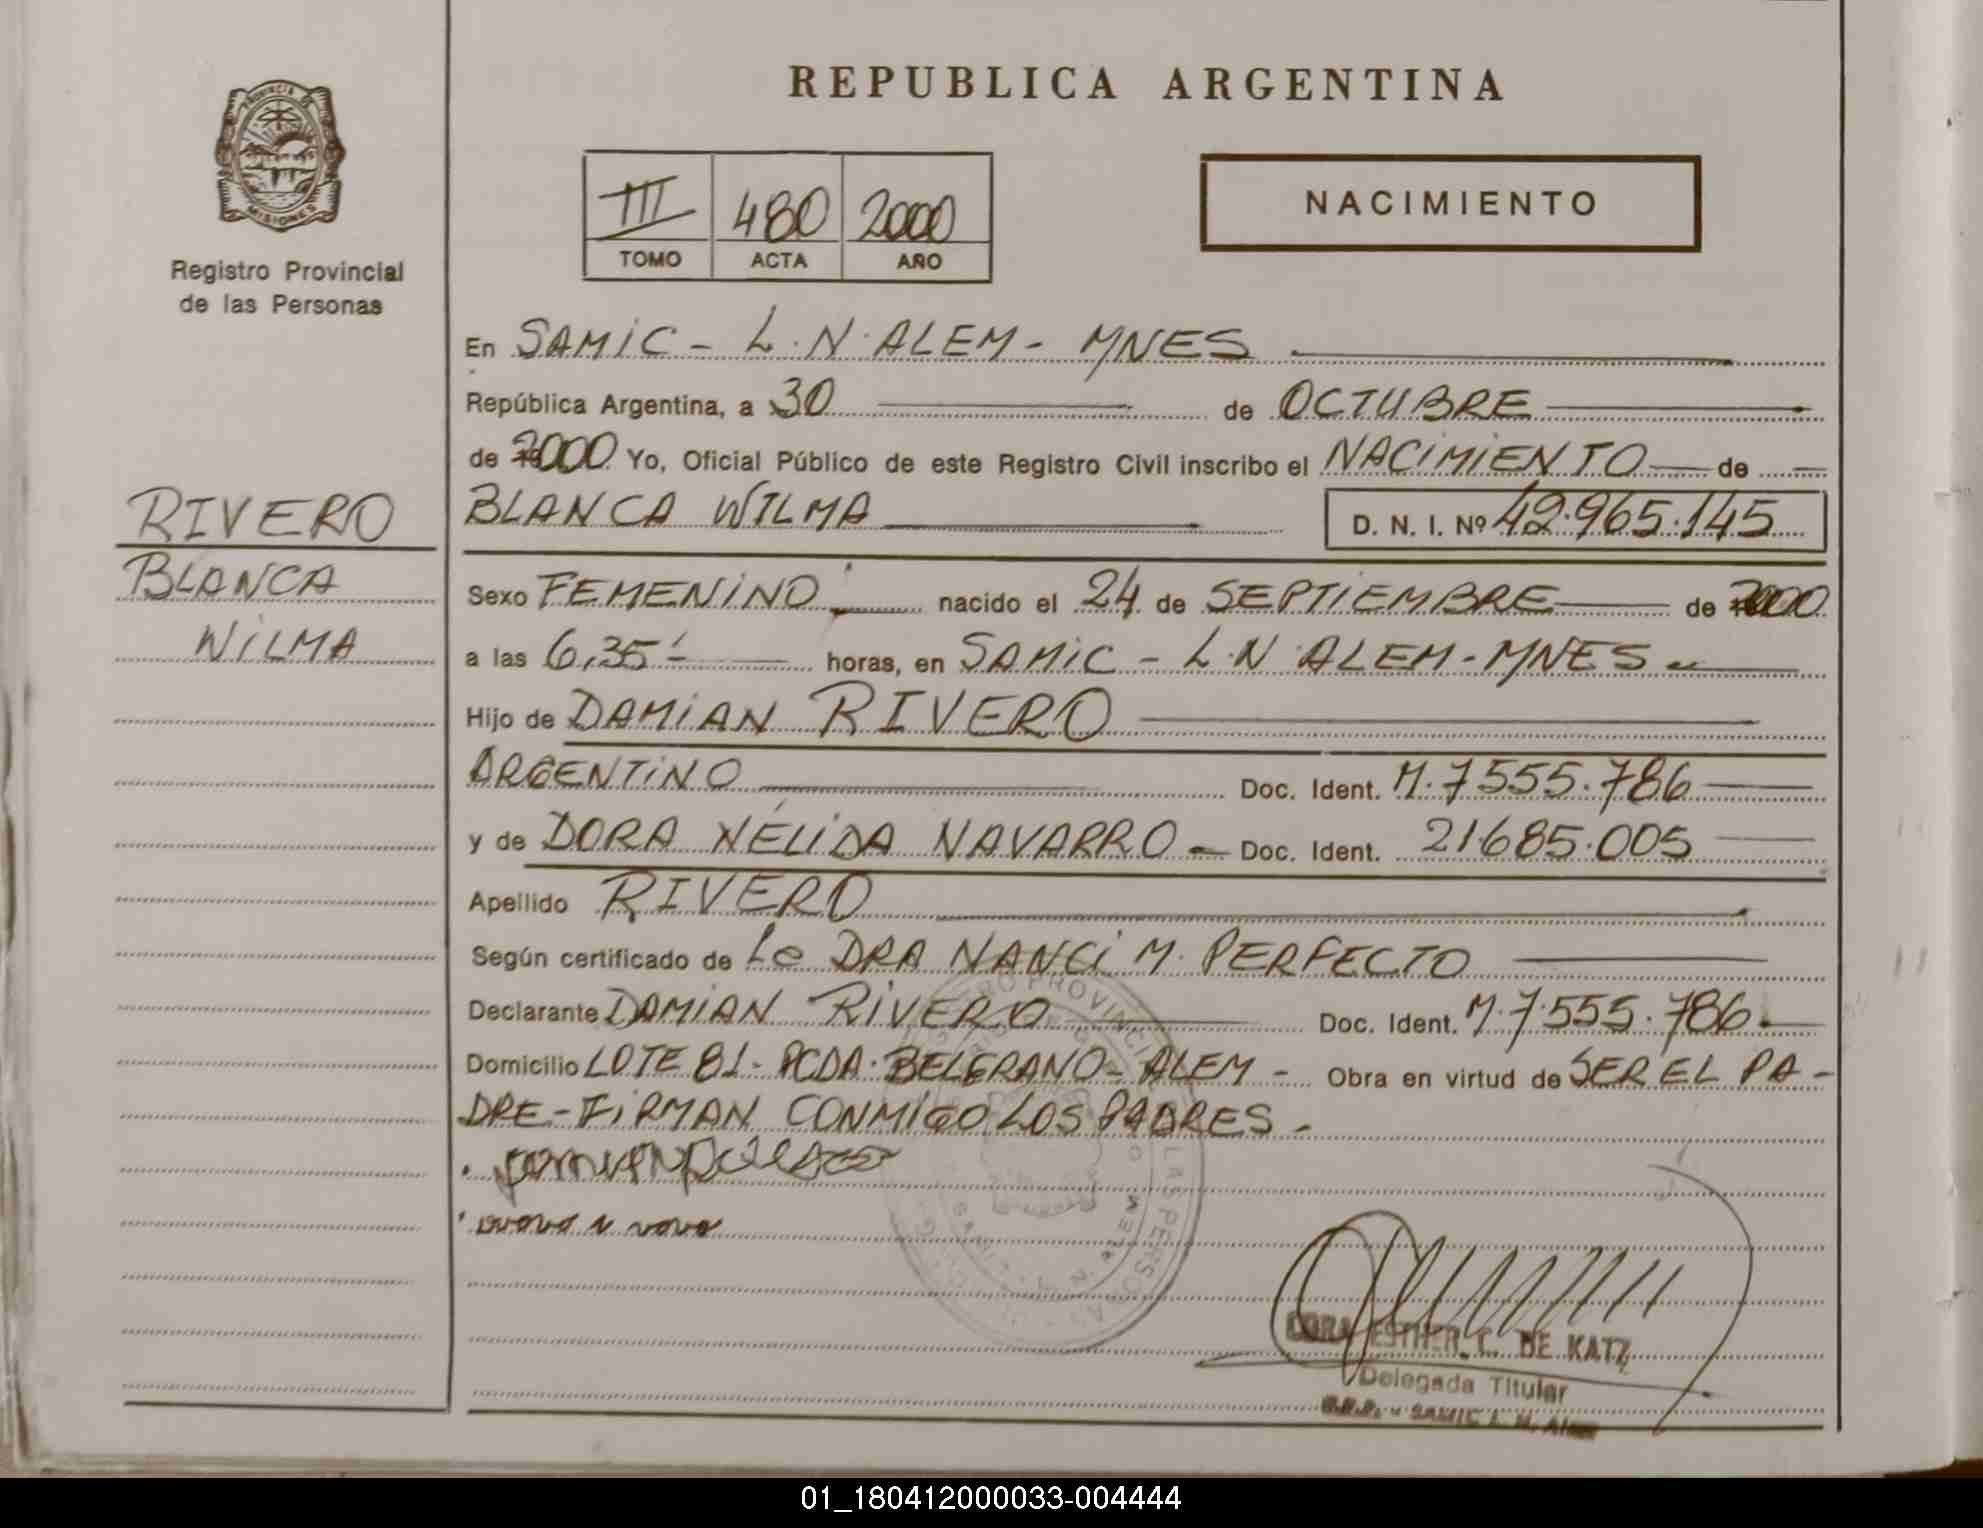 REPUBLICA ARGENTINA
PROVINCIA DE
MISIONES
Registro Provincial
de las Personas
III 480 2000
TOMO ACTA AÑO
NACIMIENTO
En SAMIC - L.N. ALEM - MNES
República Argentina, a 30 de OCTUBRE
de 2000 Yo, Oficial Público de este Registro Civil inscribo el NACIMIENTO de
RIVERO
BLANCA
WILMA
BLANCA WILMA D. N. I. Nº 42.965.145
Sexo FEMENINO nacido el 24 de SEPTIEMBRE de 2000
a las 6,35' horas, en SAMIC - L.N ALEM - MNES
Hijo de DAMIAN RIVERO
ARGENTINO Doc. Ident. M. 7555.786
y de DORA NÉLIDA NAVARRO - Doc. Ident. 21685.005
Apellido RIVERO
Según certificado de DRA NANCI M. PERFECTO
Declarante DAMIAN RIVERO Doc. Ident. M. 7.555.786.
Domicilio LOTE 81 - PCDA. BELGRANO - ALEM - Obra en virtud de SER EL PA-
DRE - FIRMAN CONMIGO LOS PADRES -
DORA ESTHER T. DE KATZ
Delegada Titular
SAMIC L. N. Alem
01_180412000033-004444